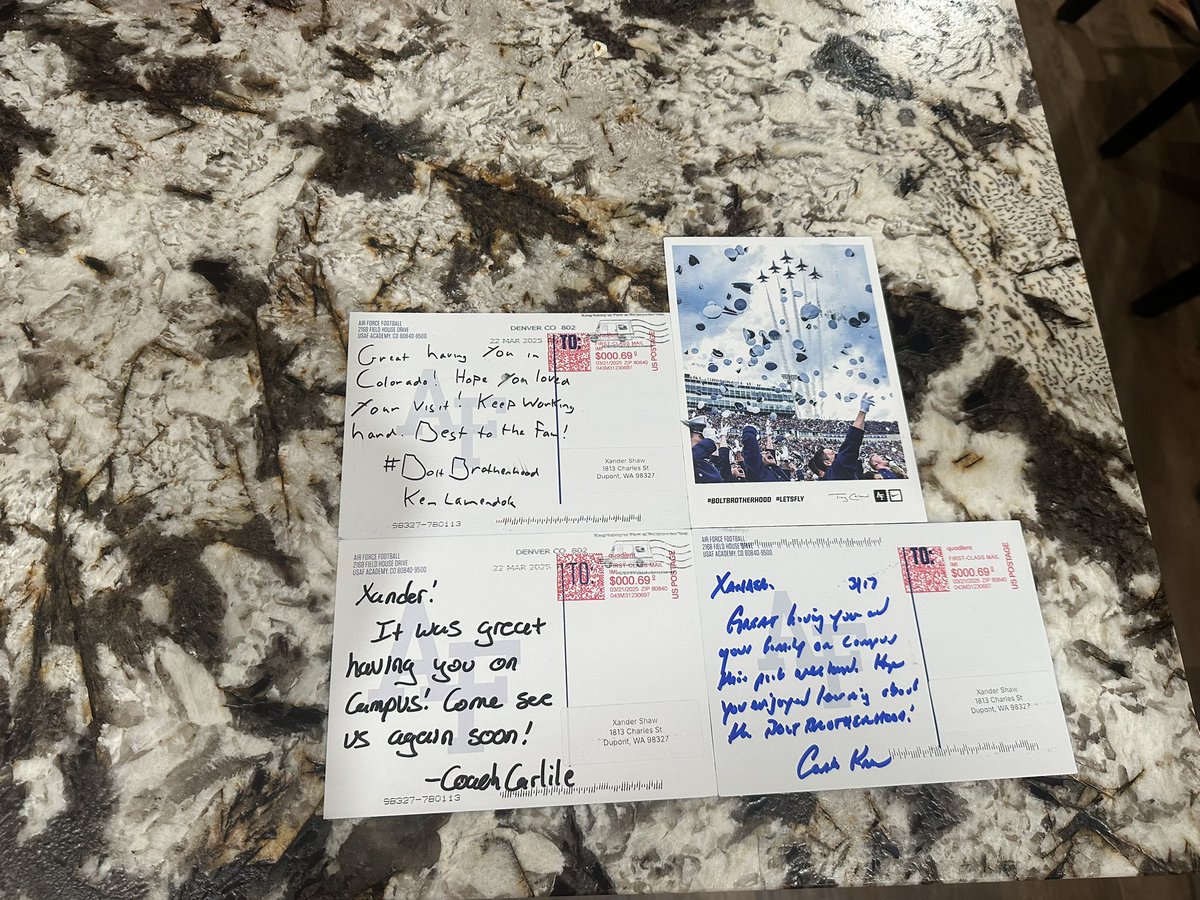 AIR FORCE FOOTBALL
2168 FIELD HOUSE DRIVE
USAF ACADEMY, CO 80840-9500
DENVER CO 802
22 MAR 2025
TO:
FIRST-CLASS MAIL
IMI
$000.69⁰
03/21/2025 ZIP 80840
043M31230697
US POSTAGE
Great having you in
Colorado! Hope you loved
your visit! Keep Working
hard. Best to the Fam!
#Bolt Brotherhood
Ken Lamendola
AF
Xander Shaw
1813 Charles St
Dupont, WA 98327
98327-780113
#BOLTBROTHERHOOD #LETSFLY
AF
AIR FORCE FOOTBALL
2168 FIELD HOUSE DRIVE
USAF ACADEMY, CO 80840-9500
DENVER CO 802
22 MAR 2025
TO:
quadient
FIRST-CLASS MAIL
IMI
$000.69⁰
03/21/2025 ZIP 80840
043M31230697
US POSTAGE
Xander!
It was great
having you on
Campus! Come see
us again soon!
-Coach Carlile
AF
Xander Shaw
1813 Charles St
Dupont, WA 98327
98327-780113
AIR FORCE FOOTBALL
2168 FIELD HOUSE DRIVE
USAF ACADEMY, CO 80840-9500
TO:
quadient
FIRST-CLASS MAIL
IMI
$000.69⁰
03/21/2025 ZIP 80840
043M31230697
US POSTAGE
Xander. 3/17
GREAT having you and
your family on campus
this past weekend. Hope
you enjoyed learning about
the BOLT BROTHERHOOD!
Coach
AF
Xander Shaw
1813 Charles St
Dupont, WA 98327